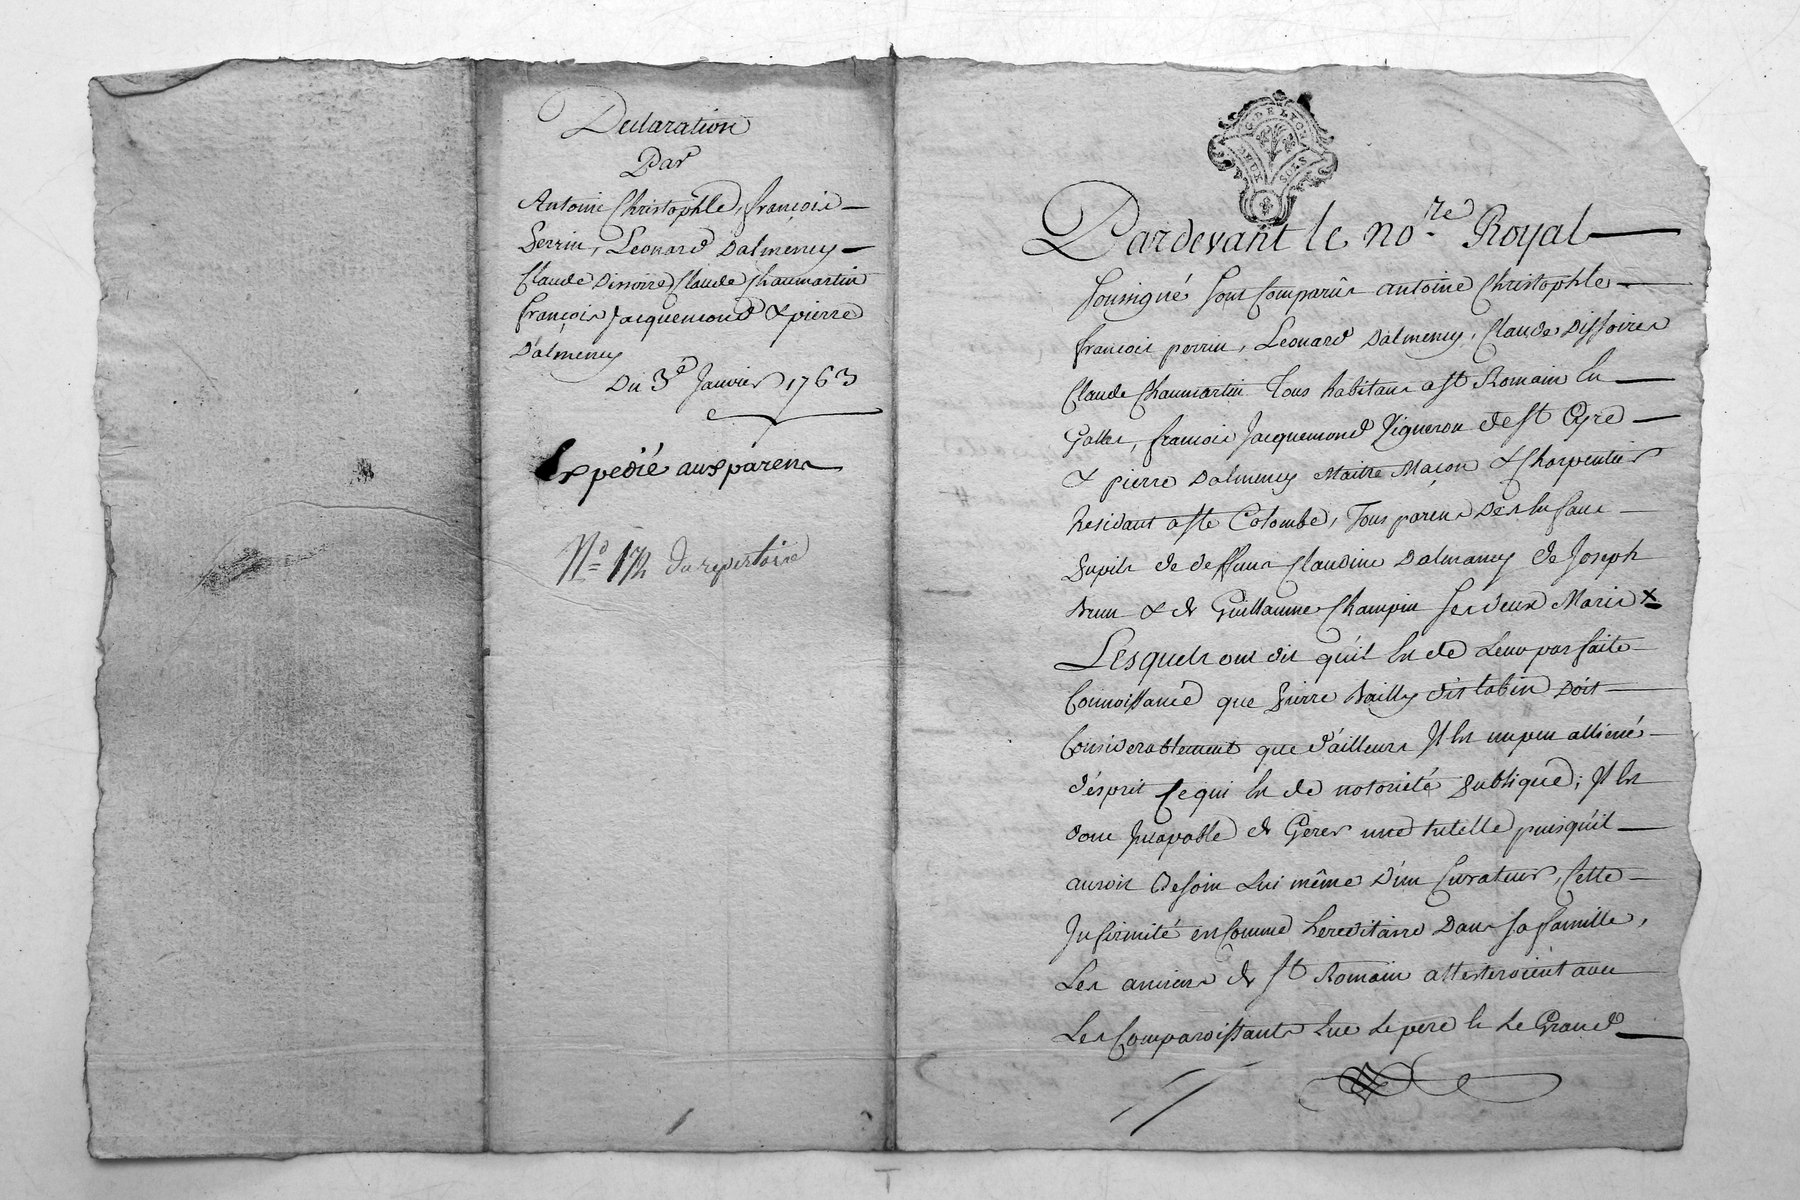 Declaration
Par
Antoine Christophle, françois
Perrin, Leonard Dalmency
Claude Dissoire, Claude Chaumartin
françois Jacquemond & pierre
D'almency
Du 3e Janvier 1763
Expedié aux parens
No 172 du repertoire
G. DE LYON
DEUX SOLS
Pardevant le no.re Royal
soussigné sont comparûs antoine Christophle
francois perrin, Leonard Dalmency, Claude Dissoires
Claude Chaumartin tous habitans a st Romain En
Galles, francois Jacquemond Vigneron de st Cyre
& pierre Dalmency Maitre Maçon & Charpentier
Residant a ste Colombe, tous parens Des Enfans
pupils de deffuns Claudine Dalmancy de Joseph
brun & de Guillaume Champin ses deux Maris x
Lesquels ont dit qu'il Est de Leur parfaite
Connoissance que pierre bailly dit tabin Doit
Considerablement que d'ailleurs Il Est un peu alliené
d'ésprit Ce qui Est de notorieté publique; Il Est
donc Incapable de Gérer une tutelle puisqu'il
auroit besoin Lui même D'un Curateur, Cette
Infirmité est Comme hereditaire Dans sa famille,
Les anciens de st Romain attesteroient avec
Les Comparoissants que Le pere & Le Grand